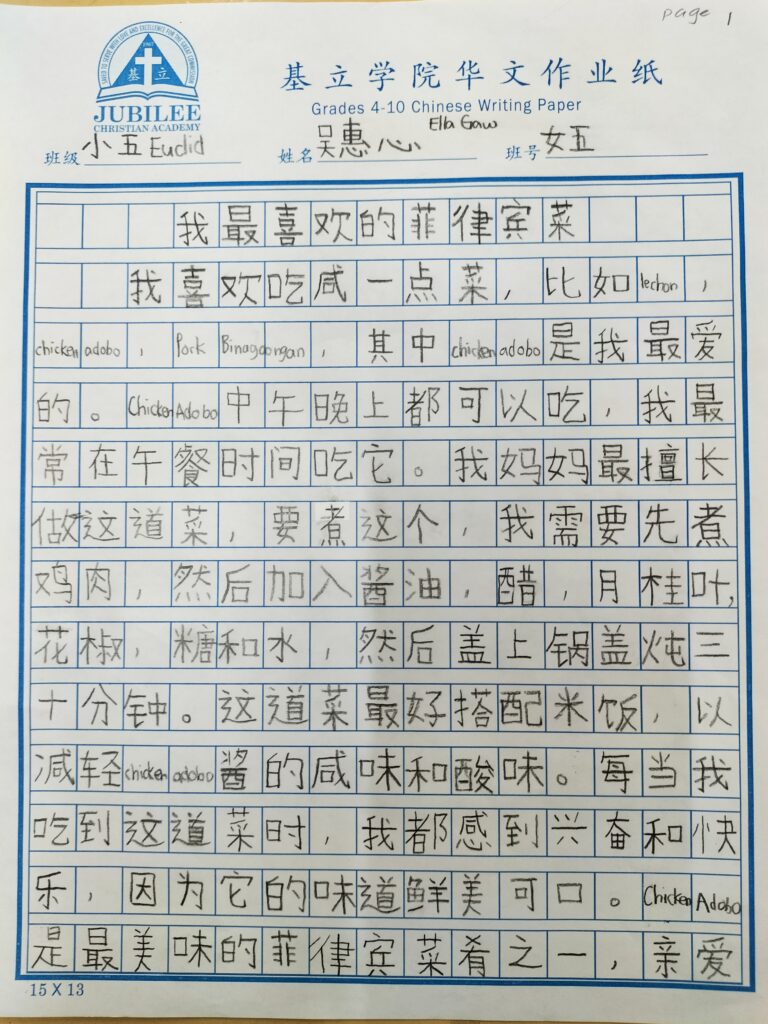 page 1
SAVED TO SERVE WITH LOVE AND EXCELLENCE FOR THE GREAT COMMISSION
基立
JUBILEE
CHRISTIAN ACADEMY
基立学院华文作业纸
Grades 4-10 Chinese Writing Paper
班级 小五 Euclid 姓名 吴惠心 Ella Gaw 班号 女五
我最喜欢的菲律宾菜
我喜欢吃咸一点菜，比如 lechon，
chicken adobo，Pork Binagoongan，其中 chicken adobo 是我最爱
的。Chicken Adobo 中午晚上都可以吃，我最
常在午餐时间吃它。我妈妈最擅长
做这道菜，要煮这个，我需要先煮
鸡肉，然后加入酱油，醋，月桂叶，
花椒，糖和水，然后盖上锅盖炖三
十分钟。这道菜最好搭配米饭，以
减轻 chicken adobo 酱的咸味和酸味。每当我
吃到这道菜时，我都感到兴奋和快
乐，因为它的味道鲜美可口。Chicken Adobo
是最美味的菲律宾菜肴之一，亲爱
15 X 13